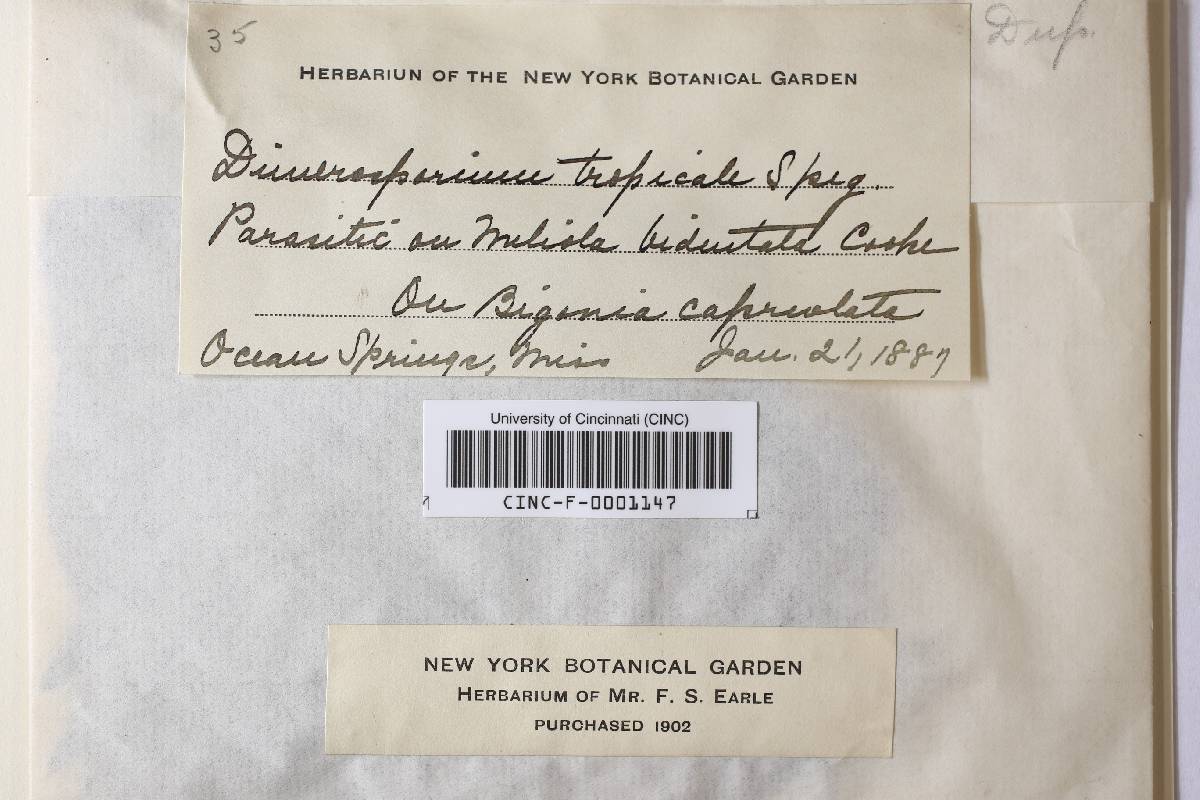 35
Dup.
HERBARIUN OF THE NEW YORK BOTANICAL GARDEN
Dimerosporium tropicale Speg.
Parasitic on Meliola bidentata Cooke
On Bigonia capreolata
Ocean Springs, Miss Jan. 21, 1887
University of Cincinnati (CINC)
CINC-F-0001147
NEW YORK BOTANICAL GARDEN
HERBARIUM OF MR. F. S. EARLE
PURCHASED 1902